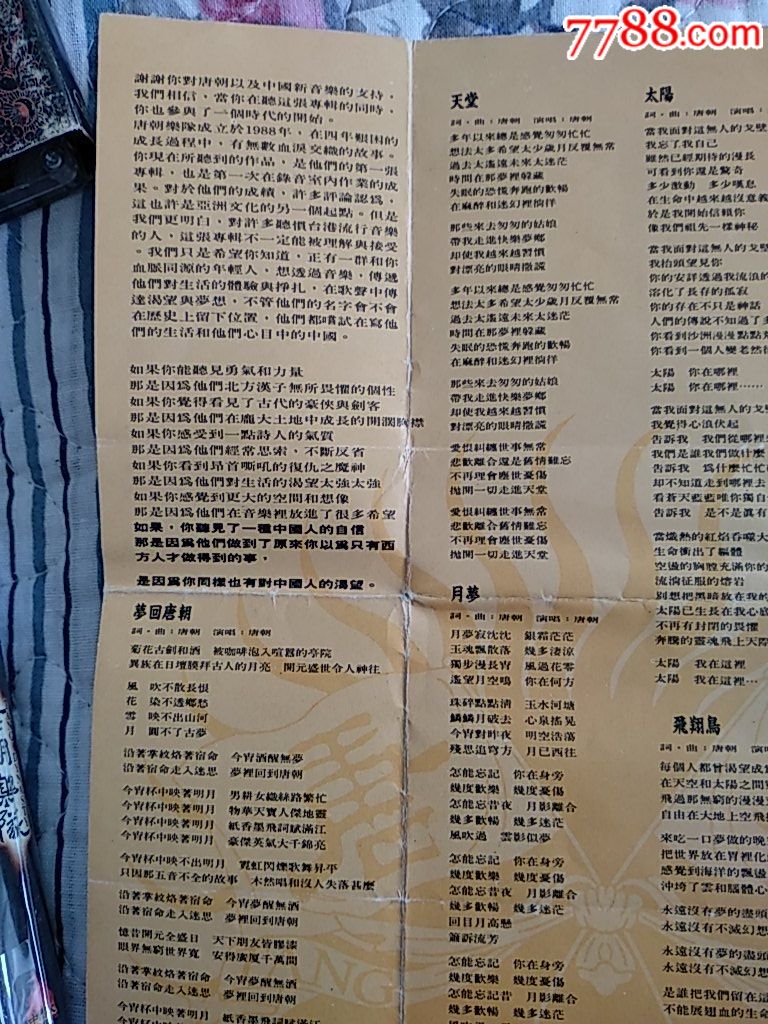 7788.com
謝謝你對唐朝以及中國新音樂的支持，
我們相信，當你在聽這張專輯的同時，
你也參與了一個時代的開始。
唐朝樂隊成立於1988年，在四年艱困的
成長過程中，有無數血淚交織的故事。
你現在所聽到的作品，是他們的第一張
專輯，也是第一次在錄音室內作業的成
果。對於他們的成績，許多評論認爲，
這也許是亞洲文化的另一個起點。但是
我們更明白，對許多聽慣台港流行音樂
的人，這張專輯不一定能被理解與接受
。我們只是希望你知道，正有一群和你
血脈同源的年輕人，想透過音樂，傳遞
他們對生活的體驗與掙扎，在歌聲中傳
達渴望與夢想，不管他們的名字會不會
在歷史上留下位置，他們都嚐試在寫他
們的生活和他們心目中的中國。
如果你能聽見勇氣和力量
那是因爲他們北方漢子無所畏懼的個性
如果你覺得看見了古代的豪俠與劍客
那是因爲他們在龐大土地中成長的開濶胸襟
如果你感受到一點詩人的氣質
那是因爲他們經常思索，不斷反省
如果你看到昂首嘶吼的復仇之魔神
那是因爲他們對生活的渴望太強太強
如果你感覺到更大的空間和想像
那是因爲他們在音樂裡放進了很多希望
如果，你聽見了一種中國人的自信
那是因爲他們做到了原來你以爲只有西
方人才做得到的事，
是因爲你同樣也有對中國人的渴望。
夢回唐朝
詞·曲：唐朝　演唱：唐朝
菊花古劍和酒　被咖啡泡入喧囂的亭院
異族在日壇膜拜古人的月亮　開元盛世令人神往
風　吹不散長恨
花　染不透鄉愁
雪　映不出山河
月　圓不了古夢
沿著掌紋烙著宿命　今宵酒醒無夢
沿著宿命走入迷思　夢裡回到唐朝
今宵杯中映著明月　男耕女織絲路繁忙
今宵杯中映著明月　物華天寶人傑地靈
今宵杯中映著明月　紙香墨飛詞賦滿江
今宵杯中映著明月　豪傑英氣大千錦亮
今宵杯中映不出明月　霓虹閃爍歌舞昇平
只因那五音不全的故事　木然唱和沒人失落甚麼
沿著掌紋烙著宿命　今宵夢醒無酒
沿著宿命走入迷思　夢裡回到唐朝
憶昔開元全盛日　天下朋友皆膠漆
眼界無窮世界寬　安得廣廈千萬間
沿著掌紋烙著宿命　今宵夢醒無酒
沿著宿命走入迷思　夢裡回到唐朝
今宵杯中映著明月　紙香墨飛詞賦滿江
天堂
詞·曲：唐朝　演唱：唐朝
多年以來總是感覺匆匆忙忙
想法太多希望太少歲月反覆無常
過去太遙遠未來太迷茫
時間在那夢裡躲藏
失眠的恐慌奔跑的歡暢
在麻醉和迷幻裡徜徉
那些來去匆匆的姑娘
帶我走進快樂夢鄉
却使我越來越習慣
對漂亮的眼睛撒謊
多年以來總是感覺匆匆忙忙
想法太多希望太少歲月反覆無常
過去太遙遠未來太迷茫
時間在那夢裡躲藏
失眠的恐慌奔跑的歡暢
在麻醉和迷幻裡徜徉
那些來去匆匆的姑娘
帶我走進快樂夢鄉
却使我越來越習慣
對漂亮的眼睛撒謊
愛恨糾纏世事無常
悲歡離合還是舊情難忘
不再理會塵世憂傷
拋開一切走進天堂
愛恨糾纏世事無常
悲歡離合舊情難忘
不再理會塵世憂傷
拋開一切走進天堂
月夢
詞·曲：唐朝　演唱：唐朝
月夢寂沈沈　銀霜茫茫
玉魂飄散落　幾多淒涼
獨步漫長宵　風過花零
遙望月空鳴　你在何方
珠碎點點清　玉水河塘
鱗鱗月破去　心泉搖晃
今宵對昨夜　明空浩蕩
殘思追穹方　月已西往
怎能忘記　你在身旁
幾度歡樂　幾度憂傷
怎能忘昔夜　月影離合
幾多暢怀　幾多迷茫
風吹過　雲影似夢
怎能忘記　你在身旁
幾度歡樂　幾度憂傷
怎能忘昔夜　月影離合
幾多暢怀　幾多迷茫
回目月高懸
簫訴流芳
怎能忘記　你在身旁
幾度歡樂　幾度憂傷
怎能忘記昔　月影離合
太陽
詞·曲：唐朝　演唱：
當我面對這無人的戈壁
我忘了我自己
雖然已經期待的漫長
可看到你還是驚奇
多少激動　多少嘆息
在生命中越來越沒意義
於是我開始信賴你
像我們祖先一樣神秘
當我面對這無人的戈壁
我抬頭望見你
你的安詳透過我流浪的
溶化了長存的孤寂
你的存在不只是神話
人們的傳說不知過了多
你看到沙洲漫漫點點
你看到一個人變老然
太陽　你在哪裡
太陽　你在哪裡……
當我面對這無人的戈
我覺得心浪伏起
告訴我　我們從哪裡
我們是誰我們做什麼
告訴我　爲什麼忙忙
却不知道走到哪裡去
看蒼天藍藍唯你獨自
告訴我　是不是真有
當熾熱的紅焰吞噬大
生命衝出了軀體
空虛的胸膛充滿你的
流淌征服的熔岩
別想把黑暗放在我的
太陽已生長在我心底
不再有封閉的畏懼
奔騰的靈魂飛上天際
太陽　我在這裡
太陽　我在這裡…
飛翔鳥
詞·曲：唐朝　演唱
每個人都曾渴望成爲
在天空和太陽之間
飛過那無窮的漫漫
自由在大地上空飛
來吃一口夢做的晚
把世界放在胃裡化
感覺到海洋的飄傷
沖垮了雲和腦體心
永遠沒有夢的盡頭
永遠沒有不滅幻想
永遠沒有夢的盡頭
永遠沒有不滅幻想
是誰把我們留在這
不能展翅血的生命